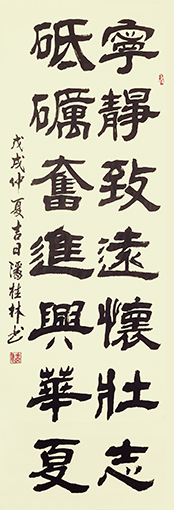 寧靜致遠懷壯志
砥礪奮進興華夏
戊戌仲夏吉日潘桂林书